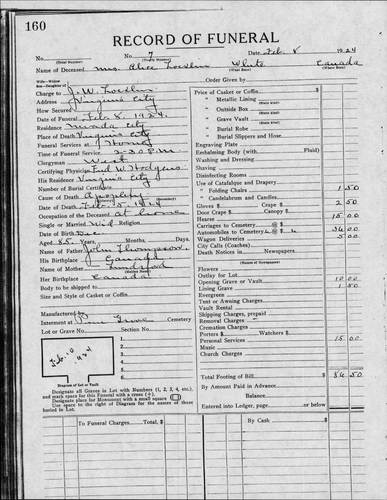 160
RECORD OF FUNERAL
No. 7 Date Feb 8 1924
(Total Number) (Yearly Number)
Name of Deceased Mrs. Alice White Canada
(What Race) (Where Born)
Wife-Widow
Son-Daughter of
Order Given by
Charge to J. W.
Address Virginia City
How Secured
Date of Funeral Feb 8, 1924
Residence City
Place of Death Virginia City
Funeral Services at Home
Time of Funeral Service 2:30 P.M.
Clergyman West
Certifying Physician W Hodgins
His Residence Virginia City
Number of Burial Certificate
Cause of Death Apoplexy
Date of Death Feb.
Occupation of the Deceased at home
Single or Married Wid Religion
Date of Birth Dec
Aged 85 Years, Months, Days.
Name of Father John Thompson
His Birthplace Canada
Name of Mother
(Maiden Name)
Her Birthplace Canada
Body to be shipped to
Size and Style of Casket or Coffin
Manufactured by
Interment at Pine Grove Cemetery
Lot or Grave No. Section No.
1.
2.
3.
4.
5.
6.
Feb. 10
924
Diagram of Lot or Vault
Designate all Graves in Lot with Numbers (1, 2, 3, 4, etc.), and mark space for this Funeral with a cross (+).
Designate place for Monument with a small square
Use space to right of Diagram for the names of those buried in Lot.
Price of Casket or Coffin
" Metallic Lining
(State Kind)
" Outside Box
(State Kind)
" Grave Vault
(State Kind)
" Burial Robe
(State Kind)
" Burial Slippers and Hose
Engraving Plate
Embalming Body (with Fluid)
Washing and Dressing
Shaving
Disinfecting Rooms
Use of Catafalque and Drapery
" Folding Chairs 1 50
" Candelabrum and Candles
Gloves $ Crape $ 2 50
Door Crape $ Canopy $
Hearse 15 00
Carriages to Cemetery @ $
Automobiles to Cemetery @ $ 36 00
Wagon Deliveries 5 00
City Calls (Coaches)
Death Notices in Newspapers
(Names of Newspapers)
Flowers
Outlay for Lot
Opening Grave or Vault 10 00
Lining Grave 1 50
Evergreen
Tent or Awning Charges
Vault Rental
Shipping Charges, prepaid
Removal Charges
Cremation Charges
Porters $ Watchers $
Personal Services 15 00
Music
Church Charges
Total Footing of Bill $ 86 50
By Amount Paid in Advance
Balance
Entered into Ledger, page or below
To Funeral Charges Total, $
Total, $